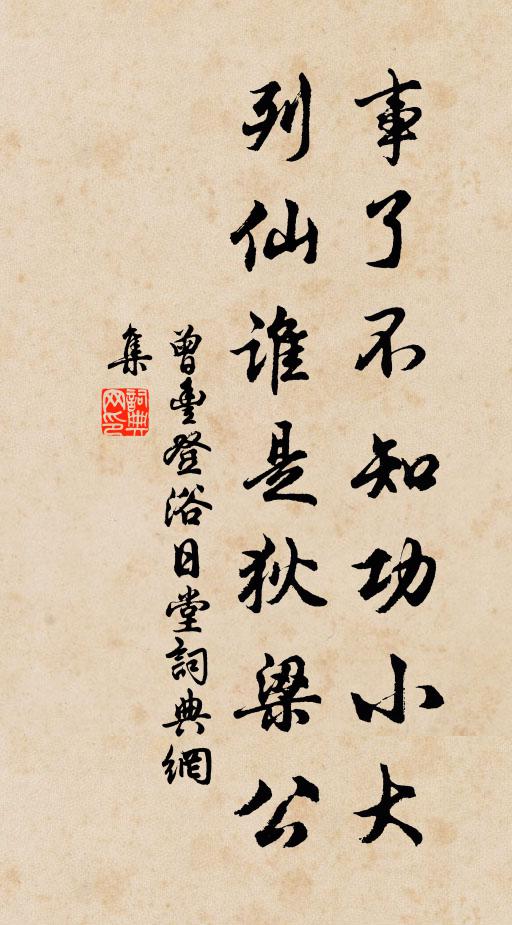 事了不知功小大
列仙誰是狄梁公
曾豐登浴日堂詞典網
集
詞典
网印